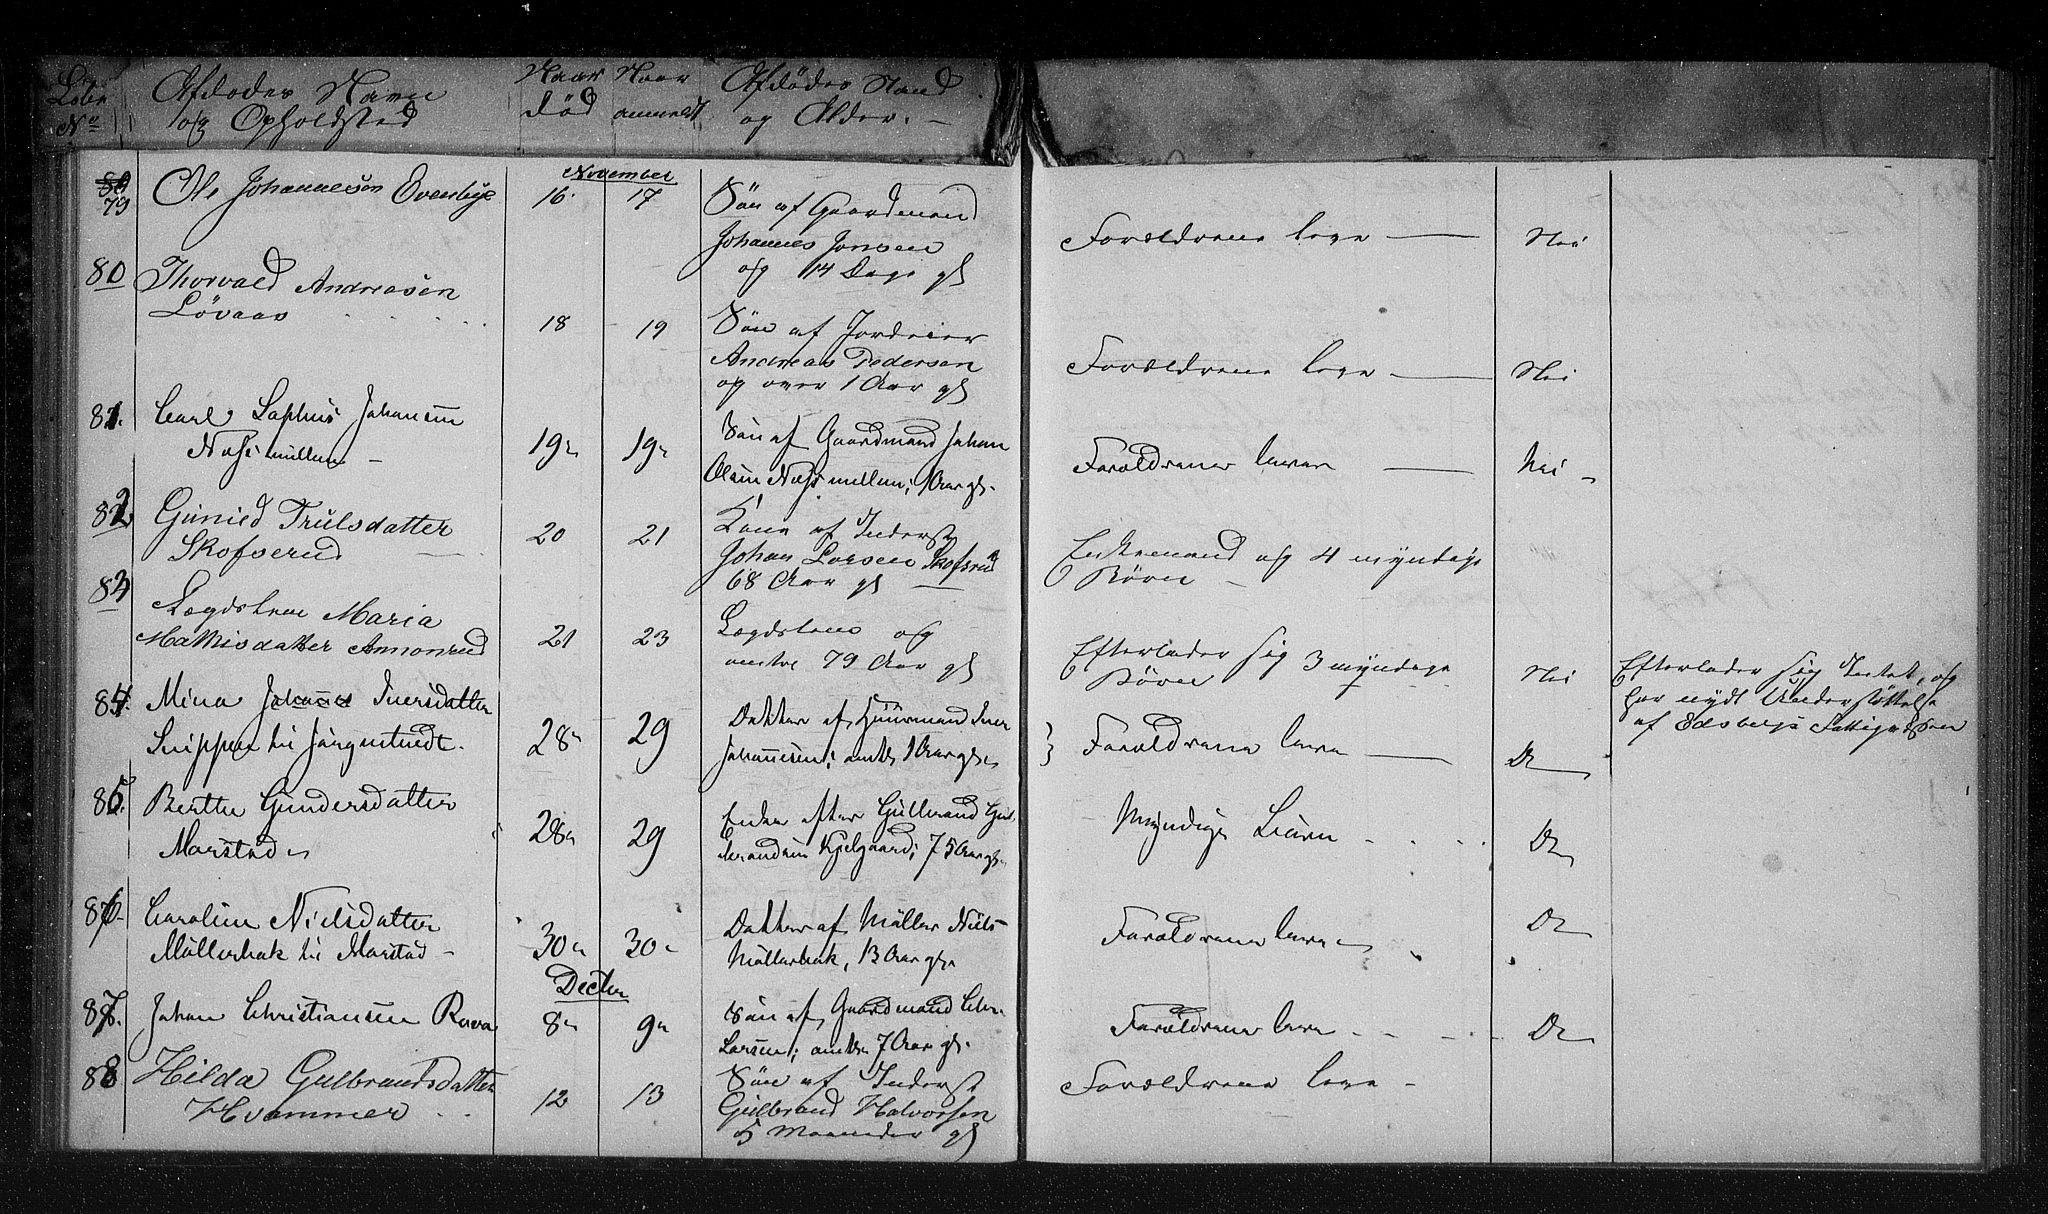 Løbe Afdødes Navn Naar Naar Afdødes Stand
No og Opholdsted død anmeldt og Alder.
November
79 Ole Johannesen Evenbye 16. 17 Søn af Gaardmand
Johannes Jonsen
og 14 Dage gl Forældrene leve Nei
80 Thorvald Andreasen
Løvaas 18 19 Søn af Jordeier
Andreas Pedersen
og over 1 Aar gl Forældrene leve Nei
81. Carl Johansen
19 19 Søn af Gaardmand Johan
Olsen 1 Aar gl. Forældrene lever Nei
82 Gunild Trulsdatter
Skofserud 20 21 Kone af Inderst
Johan Larsen Skofsrud
68 Aar gl Enkemand og 4 myndige
Børn
83 Lægdslem Maria
Mathisdatter Ammonrud 21 23 Lægdslem og
omtr 79 Aar gl Efterlader sig 3 myndige
Børn Nei Efterlader sig Intet, og
har nydt Understøttelse
af Edsbergs Fattigvæsen
84. Mina Iversdatter
28 29 Datter af Huusmand Iver
Johannesen; omtr 1 Aar gl. Forældrene lever Do
85. Berthe Gundersdatter
Marstad 28 29 Enke efter Gulbrand Gul-
brandsen Kjelgaard; 75 Aar gl. Myndige Livsarv. Do
86. Caroline Nielsdatter
Möllerhak Marstad 30 30 Datter af Möller Niels
Möllerhak, 13 Aar gl. Forældrene lever Do
Decber
87. Johan Christiansen 8 9 Søn af Gaardmand Chr.
Larsen; omtr 7 Aar gl. Forældrene lever Do
88 Hilda Gulbrandsdatter
Hvammer 12 13 Søn af Inderst
Gulbrand Halvorsen
5 Maaneder gl Forældrene leve